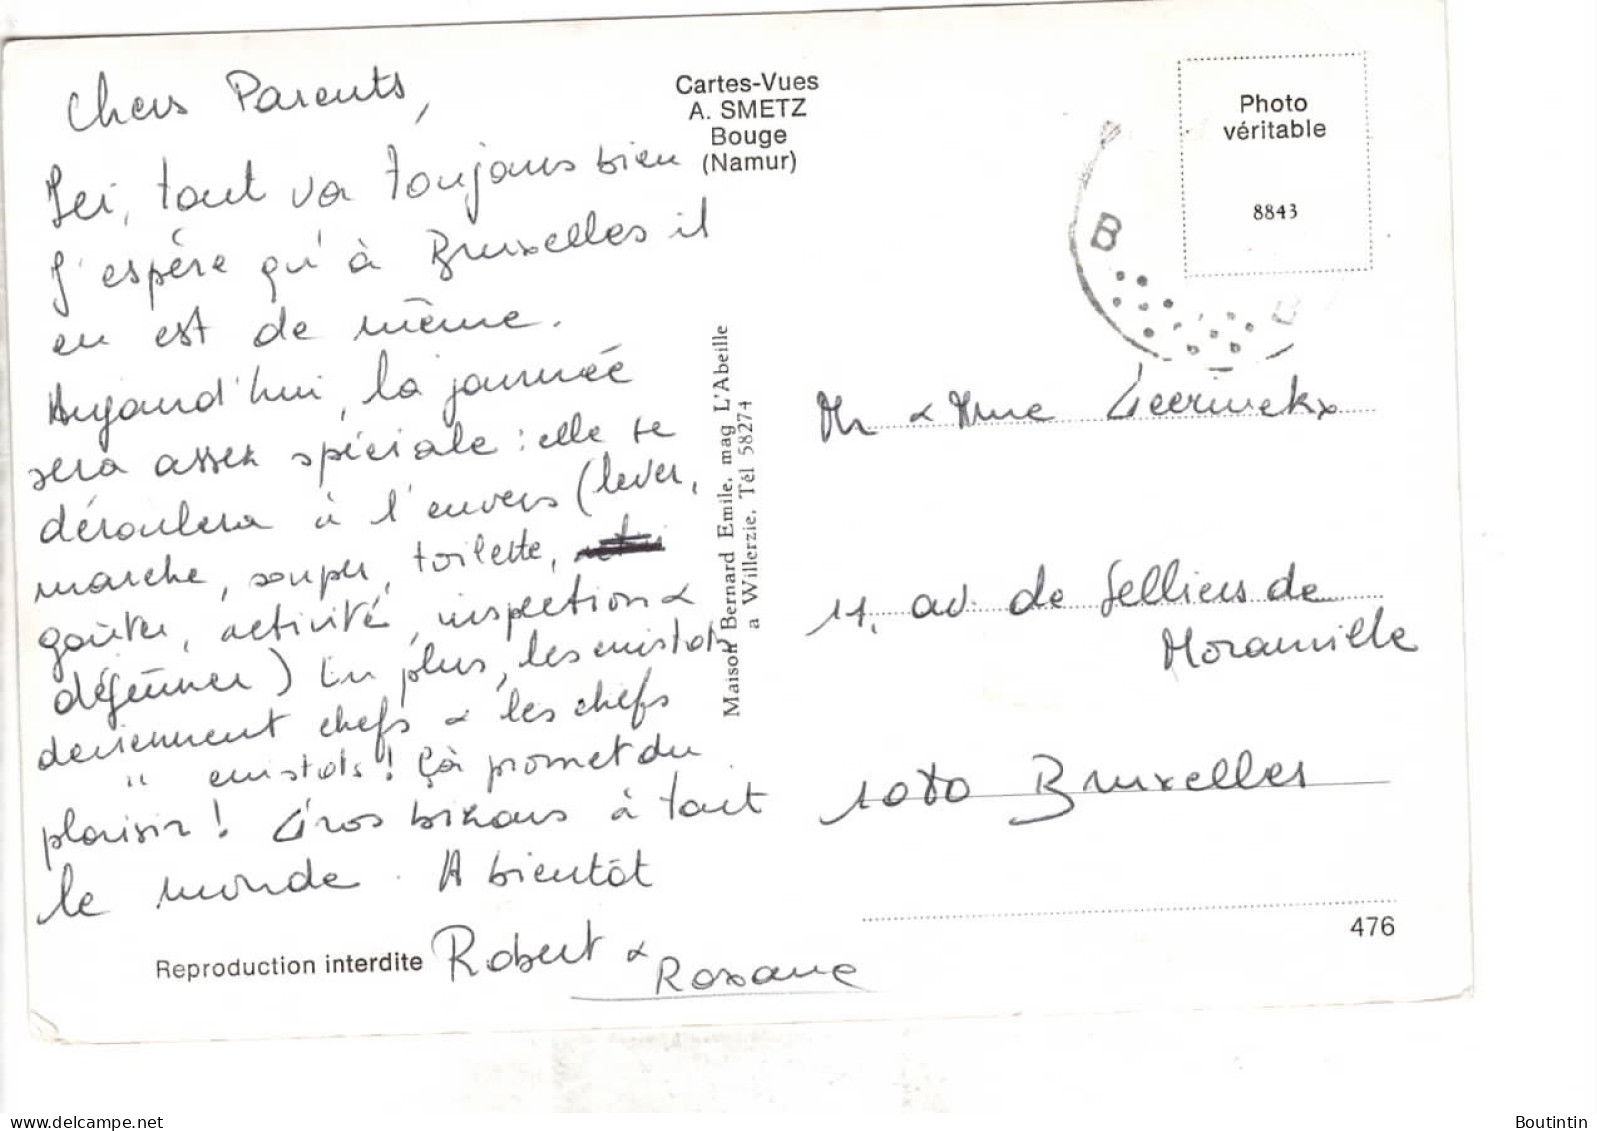 Chers Parents,
Ici, tout va toujours bien
J'espère qu'à Bruxelles il
en est de même.
Aujourd'hui, la journée
sera assez spéciale : elle se
déroulera à l'envers (lever,
marche, souper, toilette,
goûter, activité, inspection &
déjeûner) En plus, les
deviennent chefs & les chefs
" ! Çà promet du
plaisir ! Gros bizous à tout
le monde. A bientôt
Robert &
Roxane
Reproduction interdite
Cartes-Vues
A. SMETZ
Bouge
(Namur)
Maison Bernard Emile, mag L'Abeille
a Willerzie, Tél 58274
Photo
véritable
8843
B
Mr & Mme
11, av. de Selliers de
Moranville
1080 Bruxelles
476
delcampe.net
Boutintin